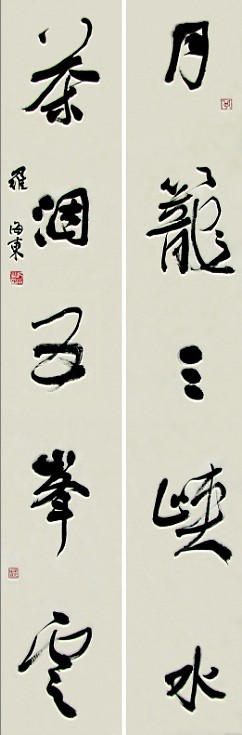 月籠三峽水
茶洇五峯雲
羅海東